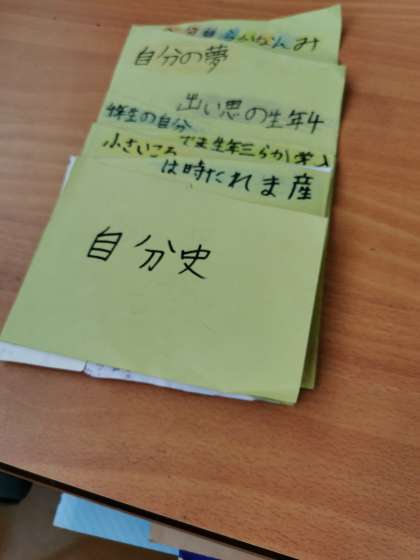 みんなから自分へ
自分の夢
4年生の思い出
4年生の自分
小さいころ
入学から三年生まで
産まれた時は
自分史